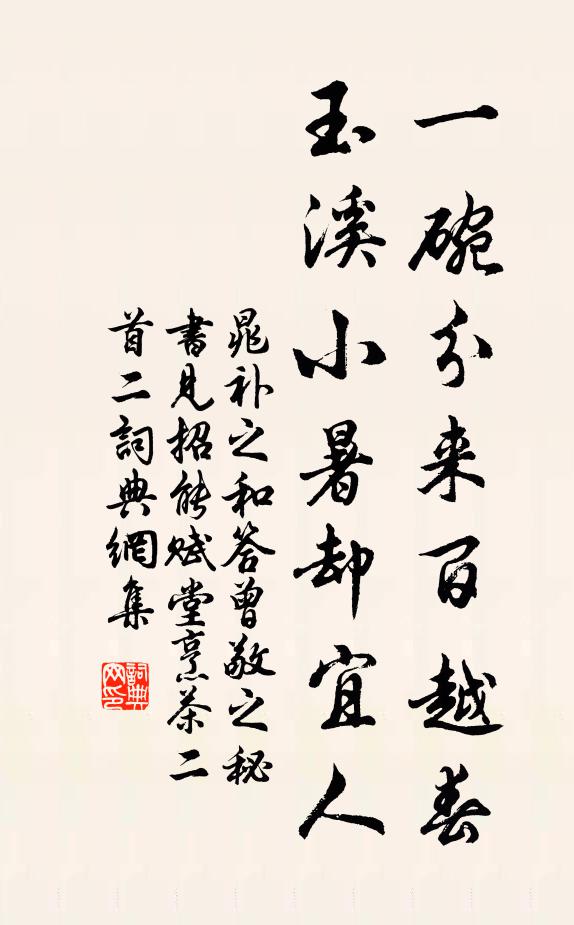 一碗分来百越春
玉溪小暑却宜人
晁补之和答曾敬之秘
書見招能赋堂烹茶二
首二詞典網集
詞典
网印